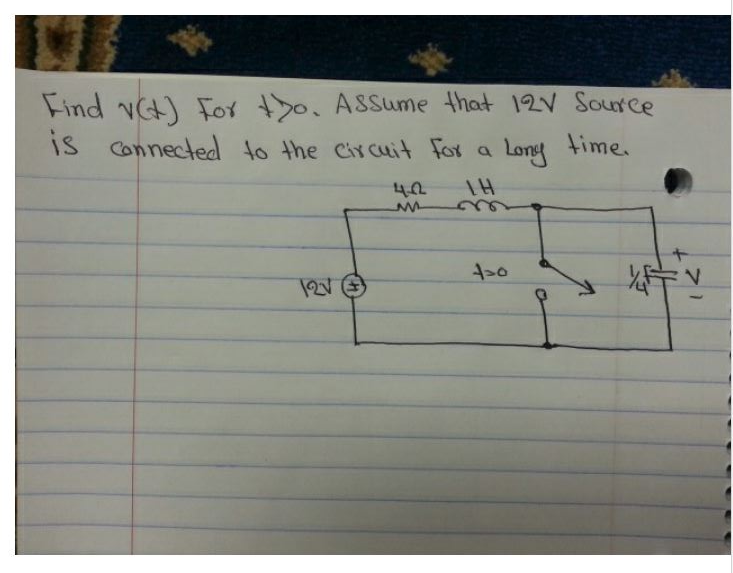 Find v(t) For t>0. Assume that 12V Source
is connected to the circuit For a Long time.
4Ω 1H
t=0
12V
1/4F
+
V
-